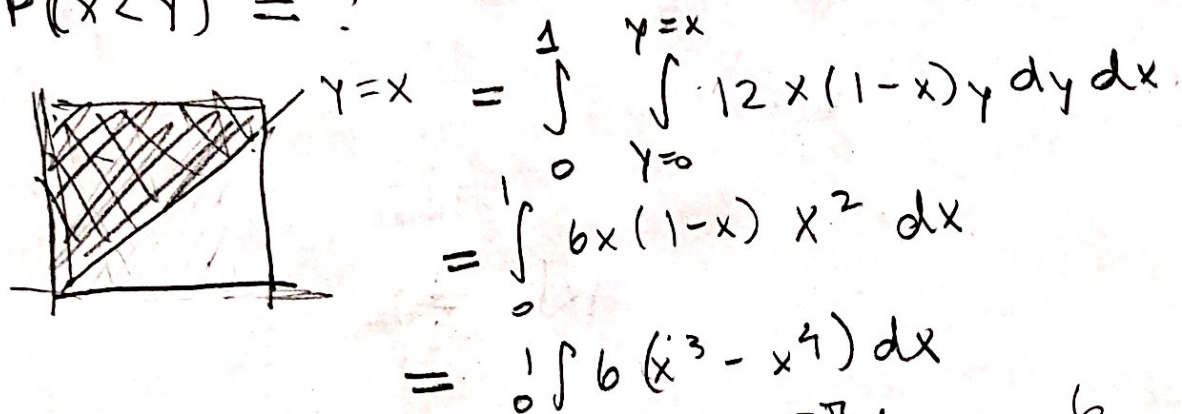 P(X<Y) = ?
Y=X = ∫₀¹ ∫_{y=0}^{y=x} 12x(1-x)y dy dx
= ∫₀¹ 6x(1-x) x² dx
= ₀¹∫ 6(x³ - x⁴) dx